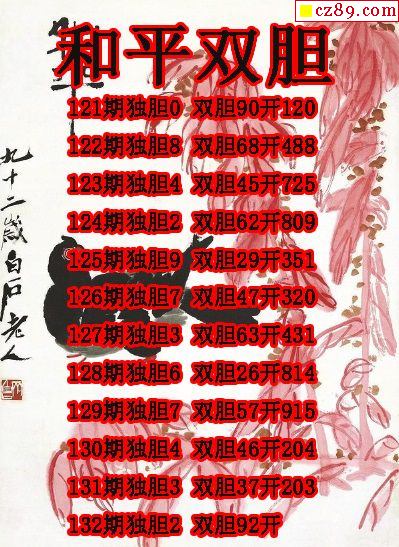 cz89.com
和平双胆
121期独胆0 双胆90开120
122期独胆8 双胆68开488
123期独胆4 双胆45开725
124期独胆2 双胆62开809
125期独胆9 双胆29开351
126期独胆7 双胆47开320
127期独胆3 双胆63开431
128期独胆6 双胆26开814
129期独胆7 双胆57开915
130期独胆4 双胆46开204
131期独胆3 双胆37开203
132期独胆2 双胆92开
九十二岁白石老人